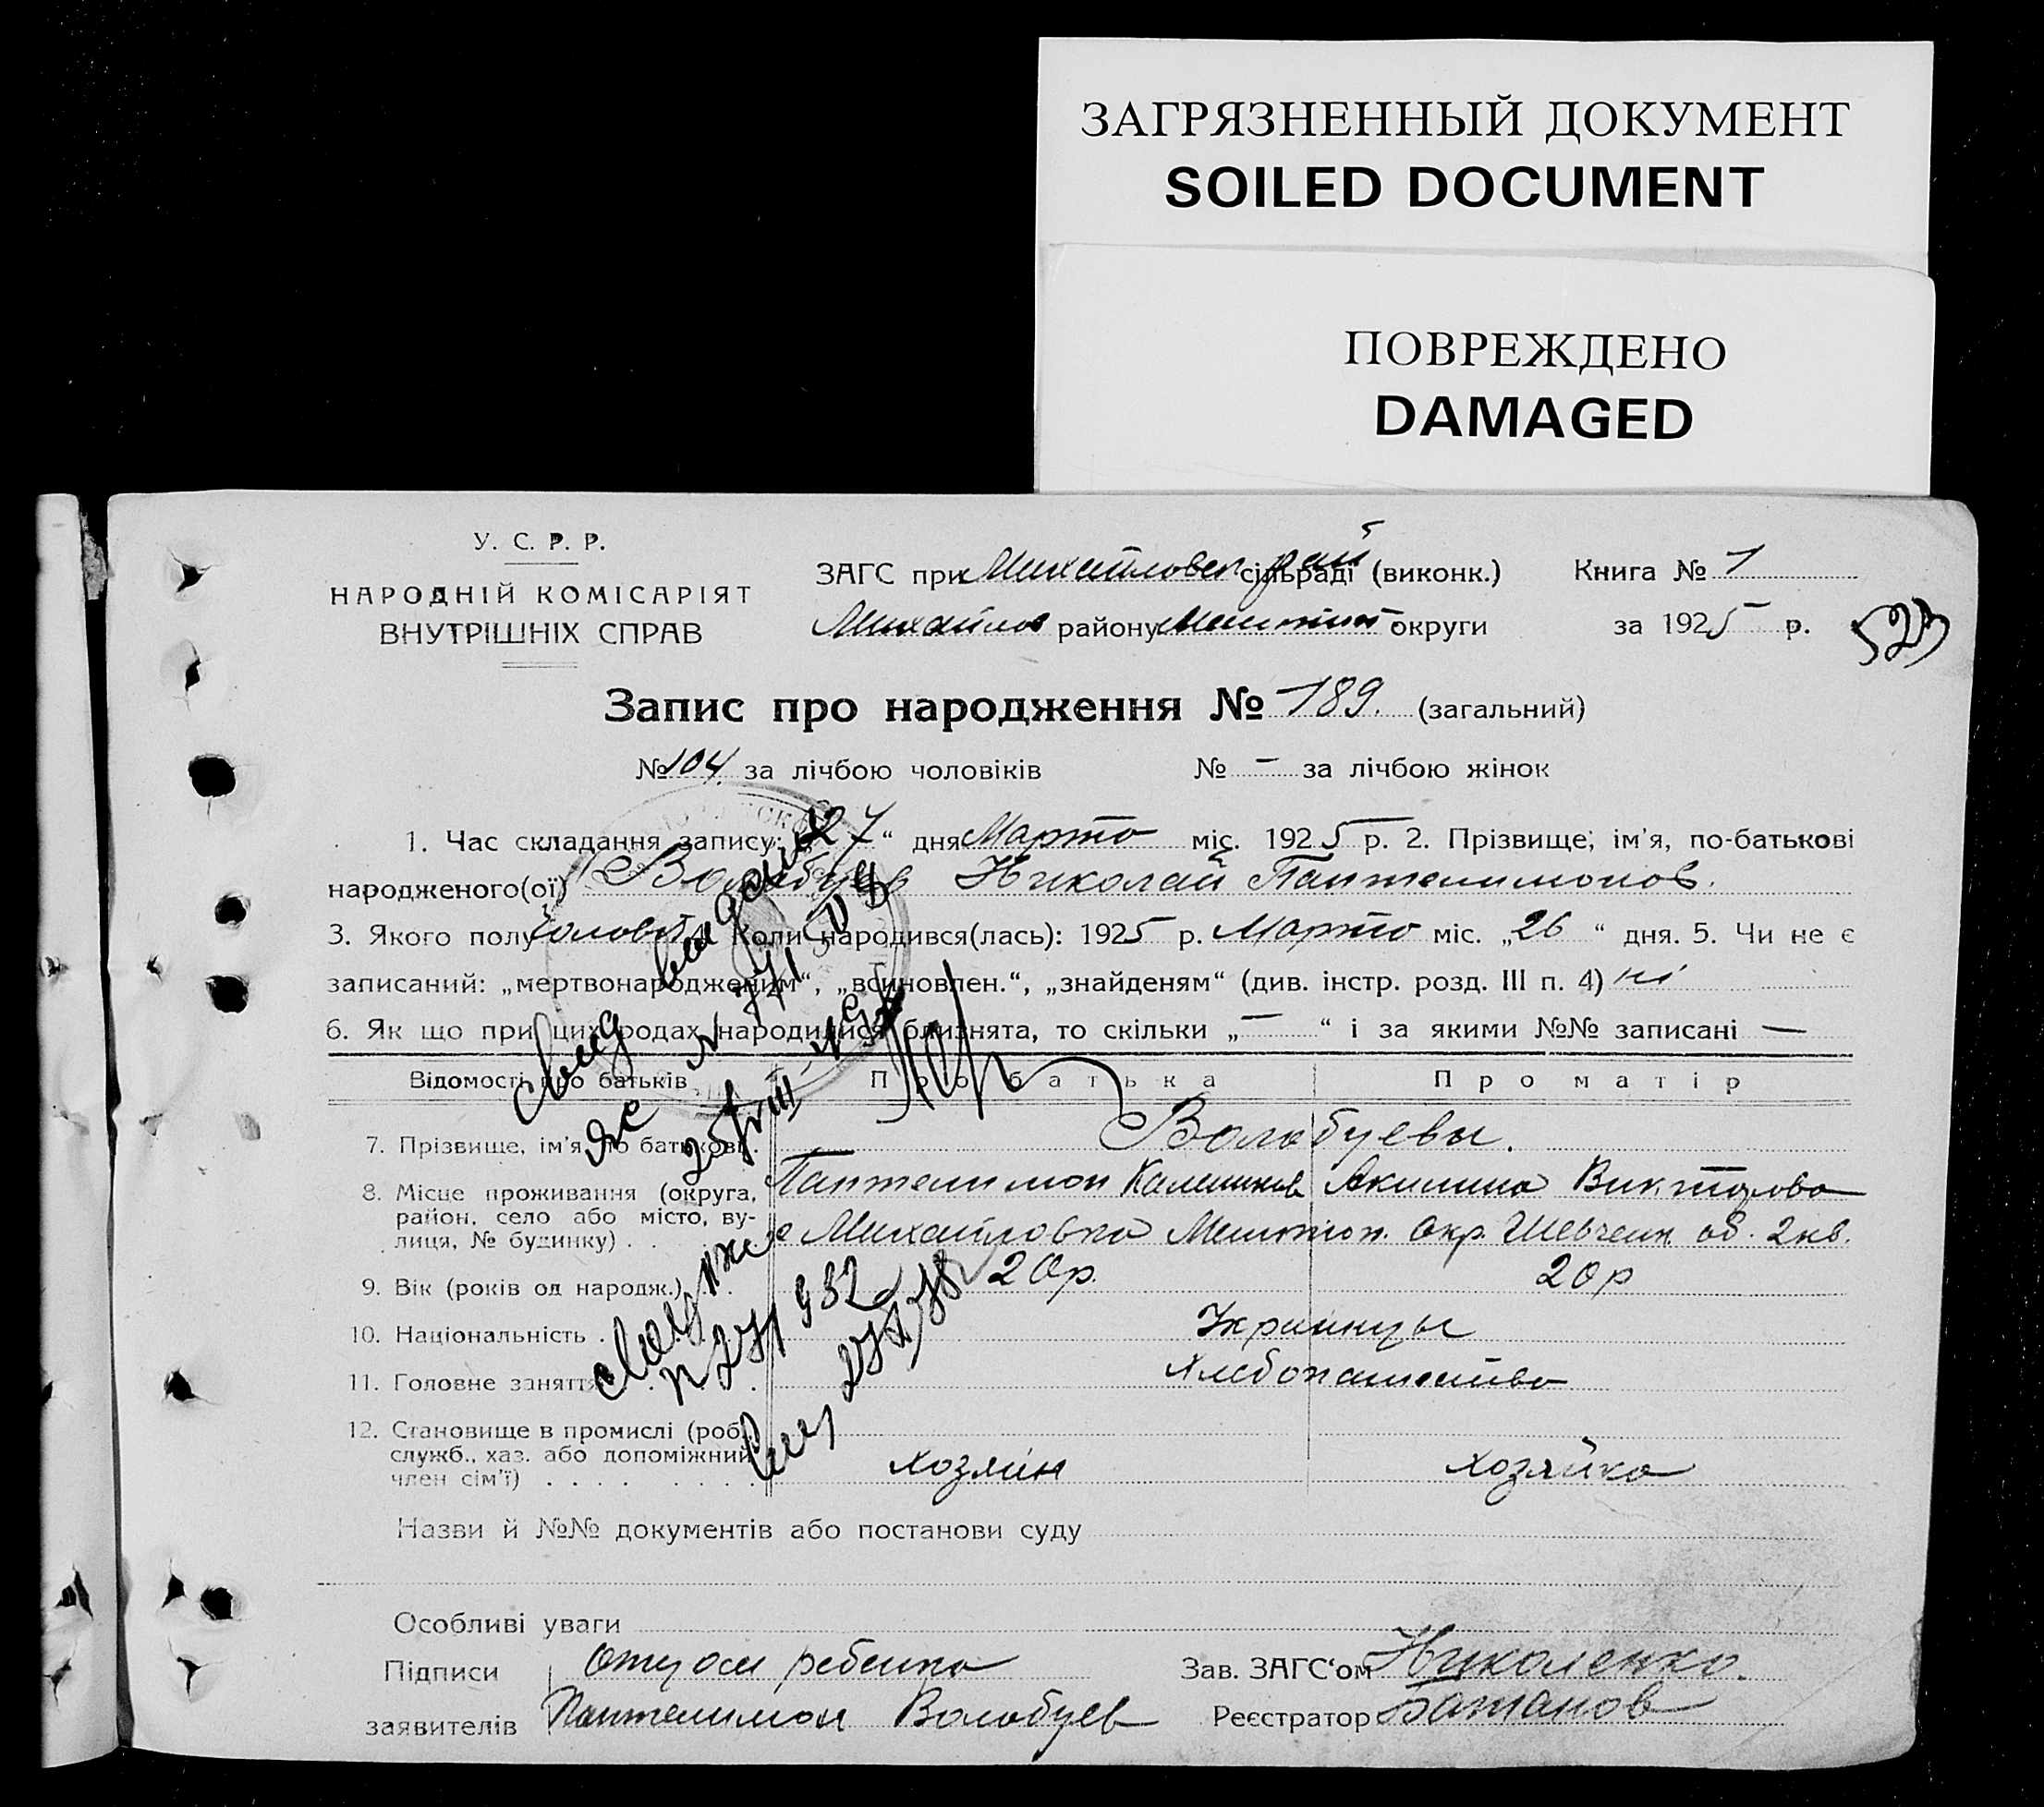 ЗАГРЯЗНЕННЫЙ ДОКУМЕНТ
SOILED DOCUMENT
ПОВРЕЖДЕНО
DAMAGED
У. С. Р. Р.
НАРОДНІЙ КОМІСАРІЯТ
ВНУТРІШНІХ СПРАВ
ЗАГС при Михайловск рай сільраді (виконк.)
Михайлов району округи
Книга № 1
за 1925 р.
523
Запис про народження № 189. (загальний)
№ 104. за лічбою чоловіків № — за лічбою жінок
1. Час складання запису: „27“ дня Марта міс. 1925 р. 2. Прізвище, ім'я, по-батькові
народженого(ої) Волобуев Николай Пантелимонов.
3. Якого полу 4. Коли народився(лась): 1925 р. Марта міс. „26“ дня. 5. Чи не є
записаний: „мертвонародженим“, „всиновлен.“, „знайденям“ (див. інстр. розд. III п. 4) ні
6. Як що при цих родах народилися близнята, то скільки „—“ і за якими №№ записані —
Відомості про батьків Про батька Про матір
7. Прізвище, ім'я, по батькові . Волобуевы.
8. Місце проживання (округа, Пантелимон Акилина Викторова
район, село або місто, ву- с Михайловка Мелитоп. Окр. Шевченк об. 2 кв.
лиця, № будинку) . .
9. Вік (років од народж.) . . 20 р. 20 р
10. Національність . Украинцы
11. Головне заняття . . Хлебопашество
12. Становище в промислі (роб.,
служб., хаз. або допоміжний хозяин хозяйка
член сім'ї) . . . . . . . .
Назви й №№ документів або постанови суду
Особливі уваги
Підписи Отцом ребенка Зав. ЗАГС'ом Николенко.
заявителів Пантелимон Волобуев Реєстратор Батанов